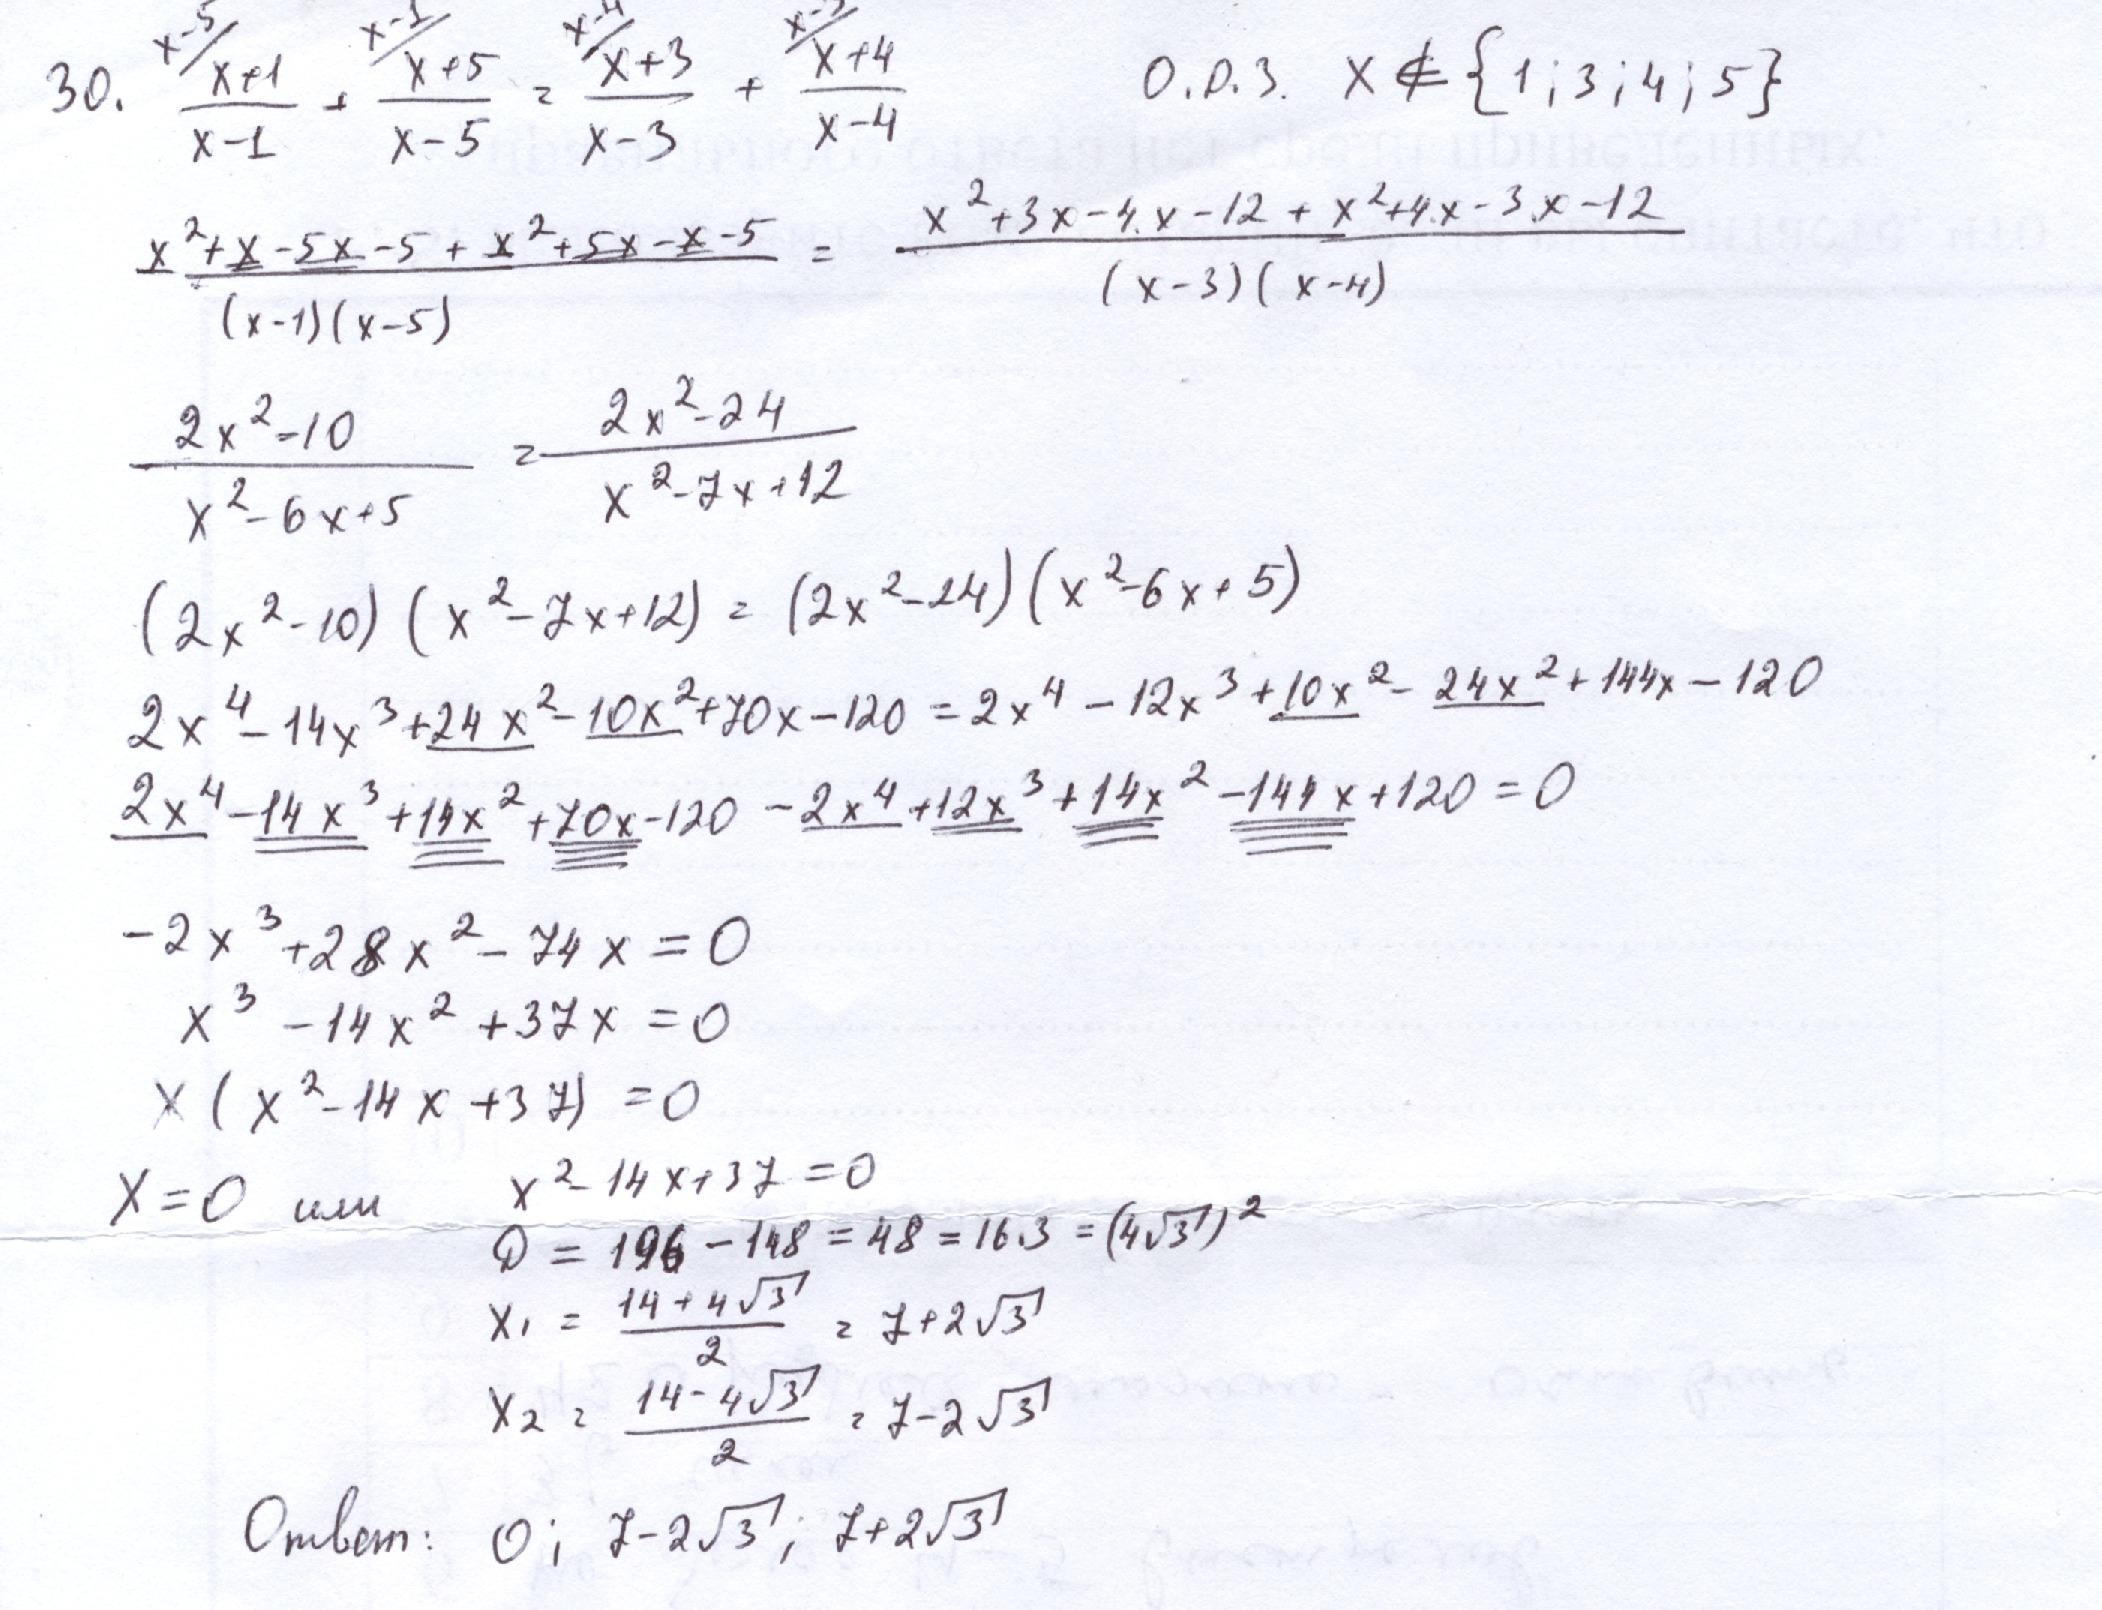 30. x-5/ (x+1)/(x-1) + x-1/ (x+5)/(x-5) = x-4/ (x+3)/(x-3) + x-3/ (x+4)/(x-4) О.Д.З. x ∉ {1;3;4;5}
(x²+x-5x-5+x²+5x-x-5)/((x-1)(x-5)) = (x²+3x-4x-12+x²+4x-3x-12)/((x-3)(x-4))
(2x²-10)/(x²-6x+5) = (2x²-24)/(x²-7x+12)
(2x²-10)(x²-7x+12) = (2x²-24)(x²-6x+5)
2x⁴-14x³+24x²-10x²+70x-120 = 2x⁴-12x³+10x²-24x²+144x-120
2x⁴-14x³+14x²+70x-120-2x⁴+12x³+14x²-144x+120=0
-2x³+28x²-74x=0
x³-14x²+37x=0
x(x²-14x+37)=0
x=0 или x²-14x+37=0
D=196-148=48=16·3=(4√3)²
x₁ = (14+4√3)/2 = 7+2√3
x₂ = (14-4√3)/2 = 7-2√3
Ответ: 0; 7-2√3; 7+2√3